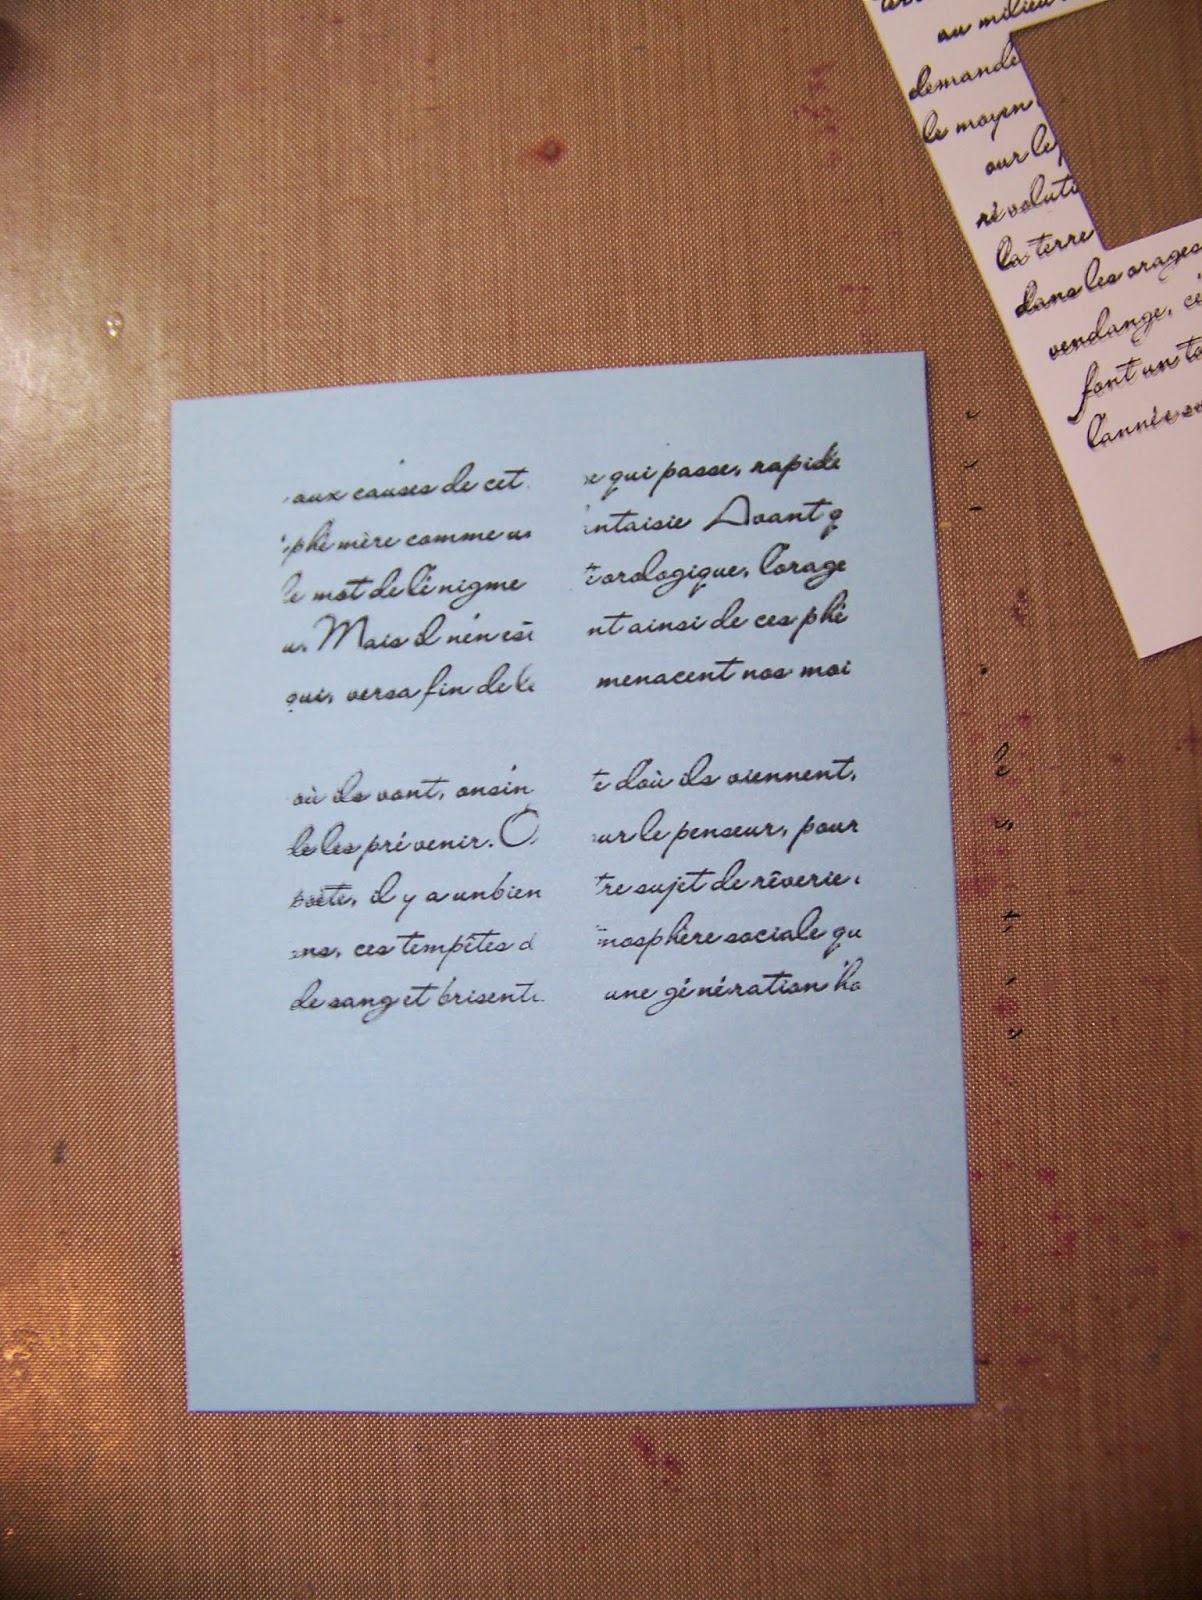 au milieu
demande
le moyen
our le
révoluti
la terre
dans les orages
vendange, cé
font un to
l'année su
aux causes de cet e qui passe, rapide
phé mère comme un ntaisie Avant q
le mot de l'é nigme orologique, l'orage
u. Mais il n'en est nt ainsi de ces phé
qui, versa fin de le menacent nos moi
où ils vont, onsin t e d'où ils viennent,
le les pré venir. O ur le penseur, pour
poète, il y a unbien tre sujet de rêverie
ns, ces tempêtes d mosphère sociale qu
de sang et brisent une gé né ration ho